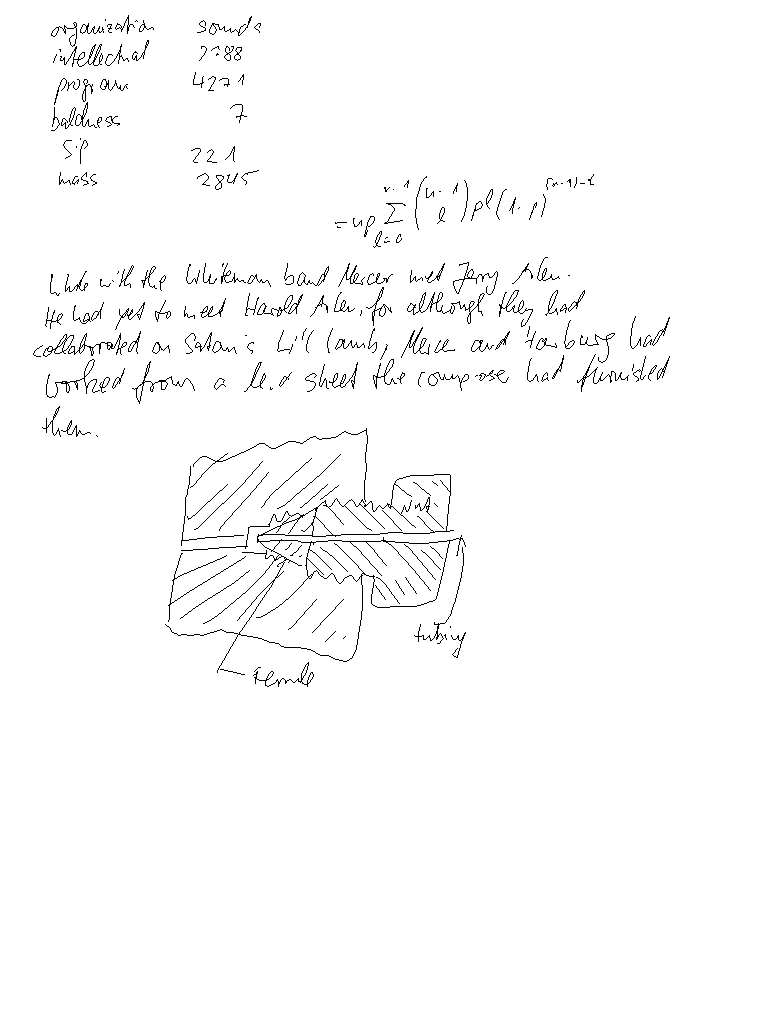 organization sounds
intellectual 2288
program 4271
baldness 7
Sip 221
mass 2845
= np \sum_{l=0}^{n-1} \binom{n-1}{l} p^l (1-p)^{(n-1)-l}
While with the Whiteman band Mercer met Jerry Arlen.
He had yet to meet Harold Arlen, for although they had
collaborated on Satan's Li'l Lamb, Mercer and Harburg had
worked from a lead sheet the composer had furnished
them.
Nut
tubing
Ferrule